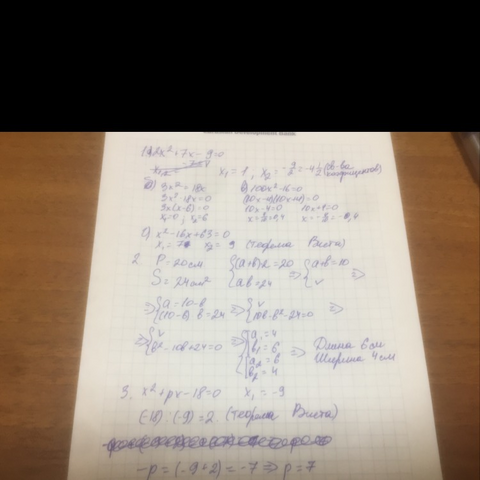 2x²+7x-9=0
x₁ = 1, x₂ = -9/2 = -4 1/2
3x² = 18x
3x²-18x=0
3x(x-6)=0
x₁=0, x₂=6
100x²-16=0
(10x-4)(10x+4)=0
10x-4=0 10x+4=0
x²-16x+63=0
x₁ = 7 x₂ = 9 (теорема Виета)
2. P = 20см {(a+b)2 = 20 ⇒ {a+b=10 ⇒
S = 24см² {ab=24 {v
⇒ {a=10-b ⇒ {v ⇒
{(10-b) b = 24 {10b-b²-24=0
⇒ {v ⇒ {a₁ = 4
{b²-10b+24=0 {b₁ = 6
{a₂ = 6
{b₂ = 4
⇒ Длина 6см
Ширина 4см
3. x²+px-18=0 x₁ = -9
(-18) : (-9) = 2 (теорема Виета)
-p = (-9+2) = -7 ⇒ p = 7